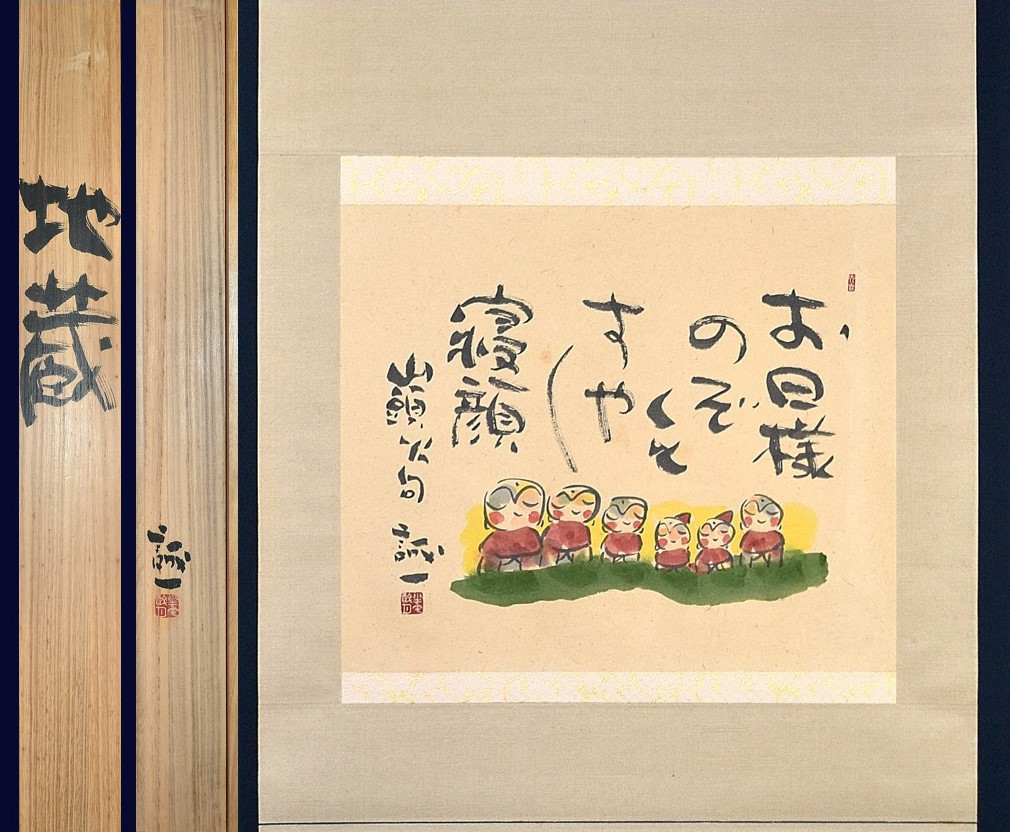 地蔵
誠一
お日様
のぞ
くと
すや〱
寝顔
山頭火句 誠一